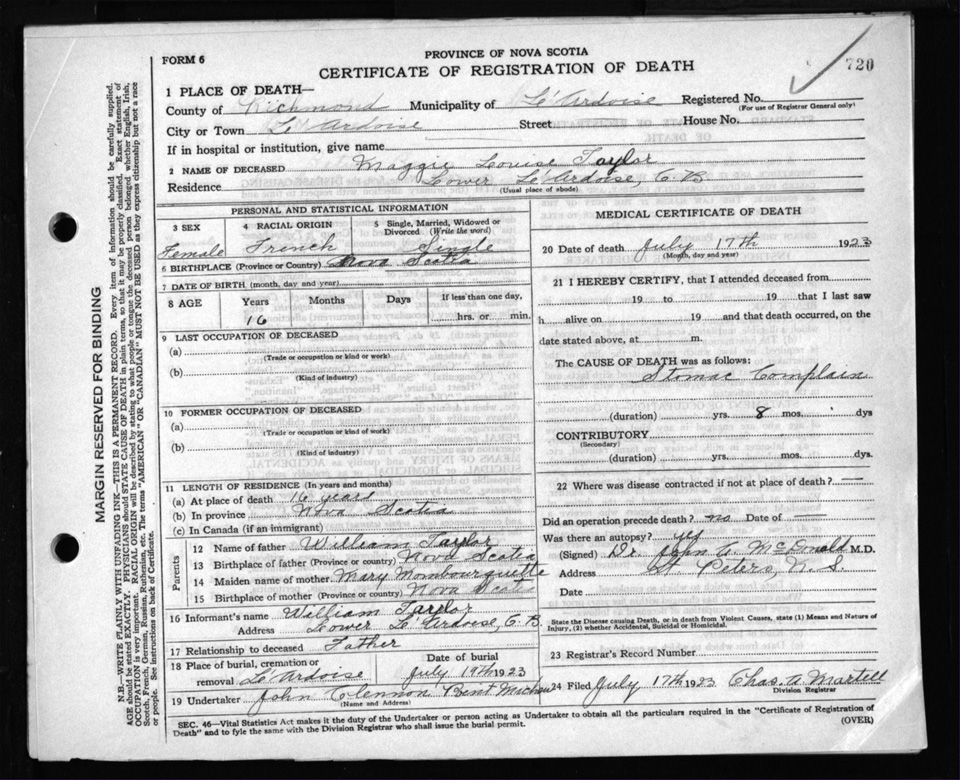 PROVINCE OF NOVA SCOTIA
FORM 6
CERTIFICATE OF REGISTRATION OF DEATH
720
1 PLACE OF DEATH—
County of Richmond Municipality of L'Ardoise Registered No.
(For use of Registrar General only)
City or Town L'Ardoise Street House No.
If in hospital or institution, give name
2 NAME OF DECEASED Maggie Louise Taylor
Residence Lower L'Ardoise, C. B.
(Usual place of abode)
PERSONAL AND STATISTICAL INFORMATION
3 SEX 4 RACIAL ORIGIN 5 Single, Married, Widowed or
Divorced. (Write the word)
Female French Single
6 BIRTHPLACE (Province or Country) Nova Scotia
7 DATE OF BIRTH (month, day and year)
8 AGE Years Months Days If less than one day,
16 hrs. or min.
9 LAST OCCUPATION OF DECEASED
(a)
(Trade or occupation or kind or work)
(b)
(Kind of industry)
10 FORMER OCCUPATION OF DECEASED
(a)
(Trade or occupation or kind or work)
(b)
(Kind of industry)
11 LENGTH OF RESIDENCE (In years and months)
(a) At place of death 16 years
(b) In province Nova Scotia
(c) In Canada (if an immigrant)
Parents
12 Name of father William Taylor
13 Birthplace of father (Province or country) Nova Scotia
14 Maiden name of mother. Mary Mombourquette
15 Birthplace of mother (Province or country) Nova Scotia
16 Informant's name William Taylor
Address Lower L'Ardoise, C. B.
17 Relationship to deceased Father
18 Place of burial, cremation or Date of burial
removal L'Ardoise July 19th 1923
19 Undertaker John Clennon
(Name and Address)
MEDICAL CERTIFICATE OF DEATH
20 Date of death July 17th 1923
(Month, day and year)
21 I HEREBY CERTIFY, that I attended deceased from
19 to 19 that I last saw
h alive on 19 and that death occurred, on the
date stated above, at m.
The CAUSE OF DEATH was as follows:
Stomac Complain
(duration) yrs. 8 mos. dys
CONTRIBUTORY
(Secondary)
(duration) yrs. mos. dys.
22 Where was disease contracted if not at place of death? —
Did an operation precede death? no Date of —
Was there an autopsy?
(Signed) Dr. John A. McDonald M.D.
Address St. Peters, N.S.
Date
State the Disease causing Death, or in death from Violent Causes, state (1) Means and Nature of
Injury, (2) whether Accidental, Suicidal or Homicidal.
23 Registrar's Record Number
24 Filed July 17th 1923 Chas. A. Martell
Division Registrar
SEC. 46—Vital Statistics Act makes it the duty of the Undertaker or person acting as Undertaker to obtain all the particulars required in the "Certificate of Registration of
Death" and to fyle the same with the Division Registrar who shall issue the burial permit. (OVER)
MARGIN RESERVED FOR BINDING
N.B.—WRITE PLAINLY WITH UNFADING INK—THIS IS A PERMANENT RECORD. Every item of information should be carefully supplied.
AGE should be stated EXACTLY. PHYSICIANS should STATE CAUSE OF DEATH in plain terms, so that it may be properly classified. Exact statement of
OCCUPATION is very important. RACIAL ORIGIN will be described by stating to what people or tongue the deceased person belonged whether English, Irish,
Scotch, French, German, Russian, Ruthenian, etc. The terms "AMERICAN" OR "CANADIAN" MUST NOT BE USED as they express citizenship but not a race
or people. See instructions on back of Certificate.